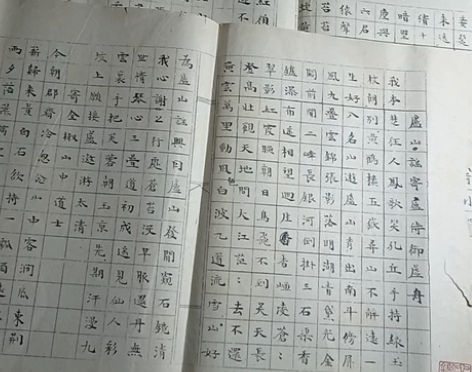 廬山謠寄盧侍御虛舟
我本楚狂人鳳歌笑孔丘手持綠玉
杖朝別黃鶴樓五嶽尋山不辭遠一
生好入名山遊廬山秀出南斗傍屏
風九疊雲錦張影落明湖青黛光金
闕前開二峰長銀河倒掛三石樑香
爐瀑布遙相望迴崖沓嶂凌蒼:
翠影紅霞映朝日鳥飛不到吳天長
登高壯觀天地間大江茫:去不還
黃雲萬里動風色白波九道流雪山好
為廬山謠興因廬山發閒窺石鏡清
我心謝公行處蒼苔沒早服還丹無
世情琴心三疊道初成遙見仙人彩
雲裏手把芙蓉朝玉京先期汗漫九
垓上願接盧敖遊太清
寄全椒山中道士
今朝郡齋冷忽念山中客澗底束荊
薪歸來煮白石欲持一瓢酒
雨夕落葉